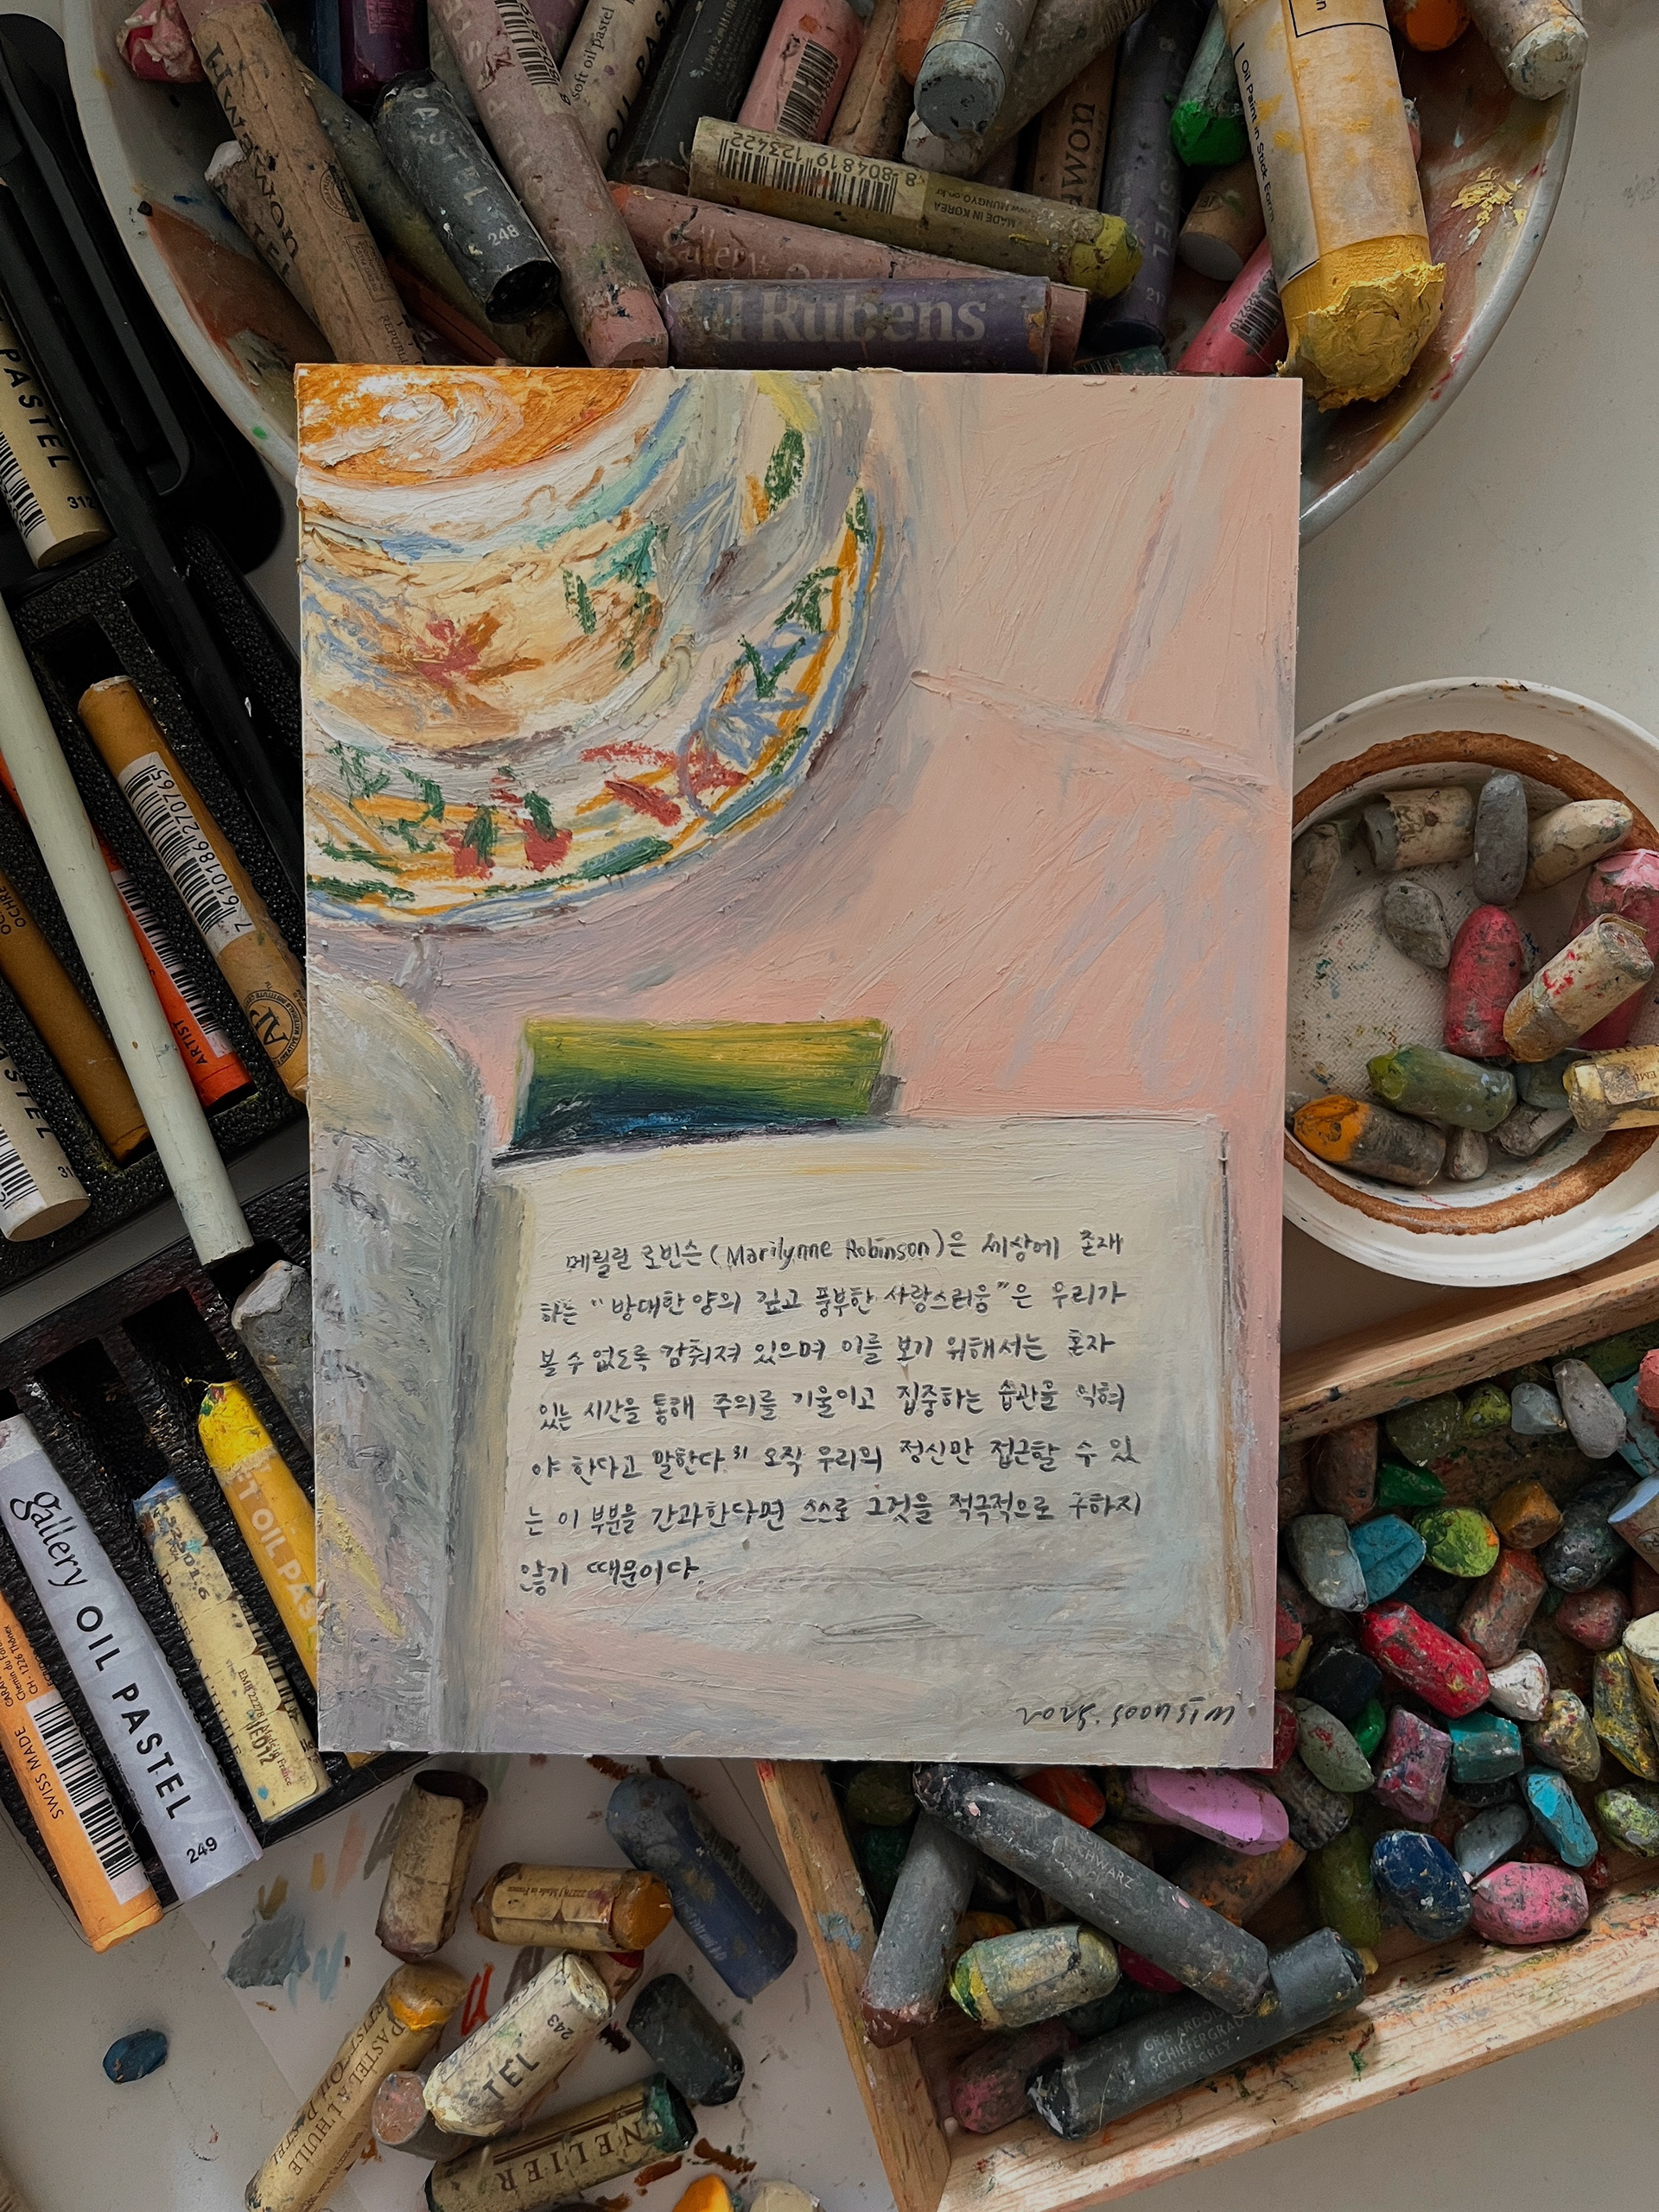 soft oil pastel
HWAWON
PASTEL
248
8 804819 123422
MADE IN KOREA
www.MUNGYO.co.kr
Gallery
Rubens
Oil Paint in Stick Form
PASTEL
312
7610186 270765
OCHRE
ARTIST
AP
메릴린 로빈슨 (Marilynne Robinson)은 세상에 존재
하는 "방대한 양의 깊고 풍부한 사랑스러움"은 우리가
볼 수 없도록 감춰져 있으며 이를 보기 위해서는 혼자
있는 시간을 통해 주의를 기울이고 집중하는 습관을 익혀
야 한다고 말한다³¹ 오직 우리의 정신만 접근할 수 있
는 이 부분을 간과한다면 스스로 그것을 적극적으로 구하지
않기 때문이다.
2025. soonsim
gallery OIL PASTEL
249
SWISS MADE
OIL PAS
SCHWARZ
GRIS ARDOISE
SCHIEFERGRAU
243
TEL
PASTEL A L'HUILE
NELIER